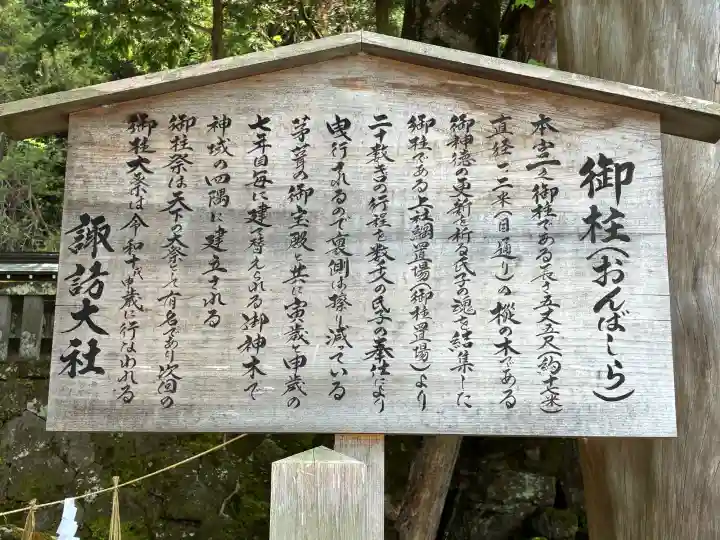 御柱（おんばしら）
本宮一之御柱である長さ五丈五尺（約十六米）
直径一二米（目通り）の樅の木である
御神徳の更新を祈る氏子の魂を結集した
御柱である上社綱置場（御柱置場）より
二十数きロの行程を数丈の氏子の奉仕により
曳行されるので裏側は擦り減ている
茅葺の御宝殿と共に寅歳と申歳の
七年目毎に建て替えられる御神木で
神域の四隅に建立される
御柱祭は天下の大祭として有名であり次回の
御柱大祭は令和十年申歳に行なわれる
諏訪大社